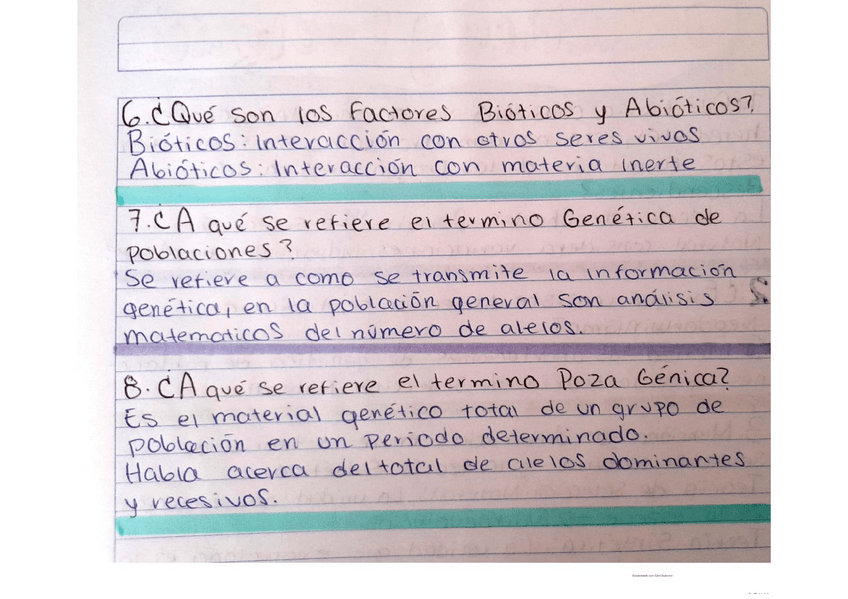 6.¿Qué son los Factores Bióticos y Abióticos?
Bióticos: Interacción con otros seres vivos
Abióticos: Interacción con materia inerte
7.¿A qué se refiere el termino Genética de
poblaciones?
Se refiere a como se transmite la información
genética, en la población general son análisis
matematicos del número de alelos.
8. ¿A qué se refiere el termino Poza Génica?
Es el material genético total de un grupo de
población en un periodo determinado.
Habla acerca del total de alelos dominantes
y recesivos.